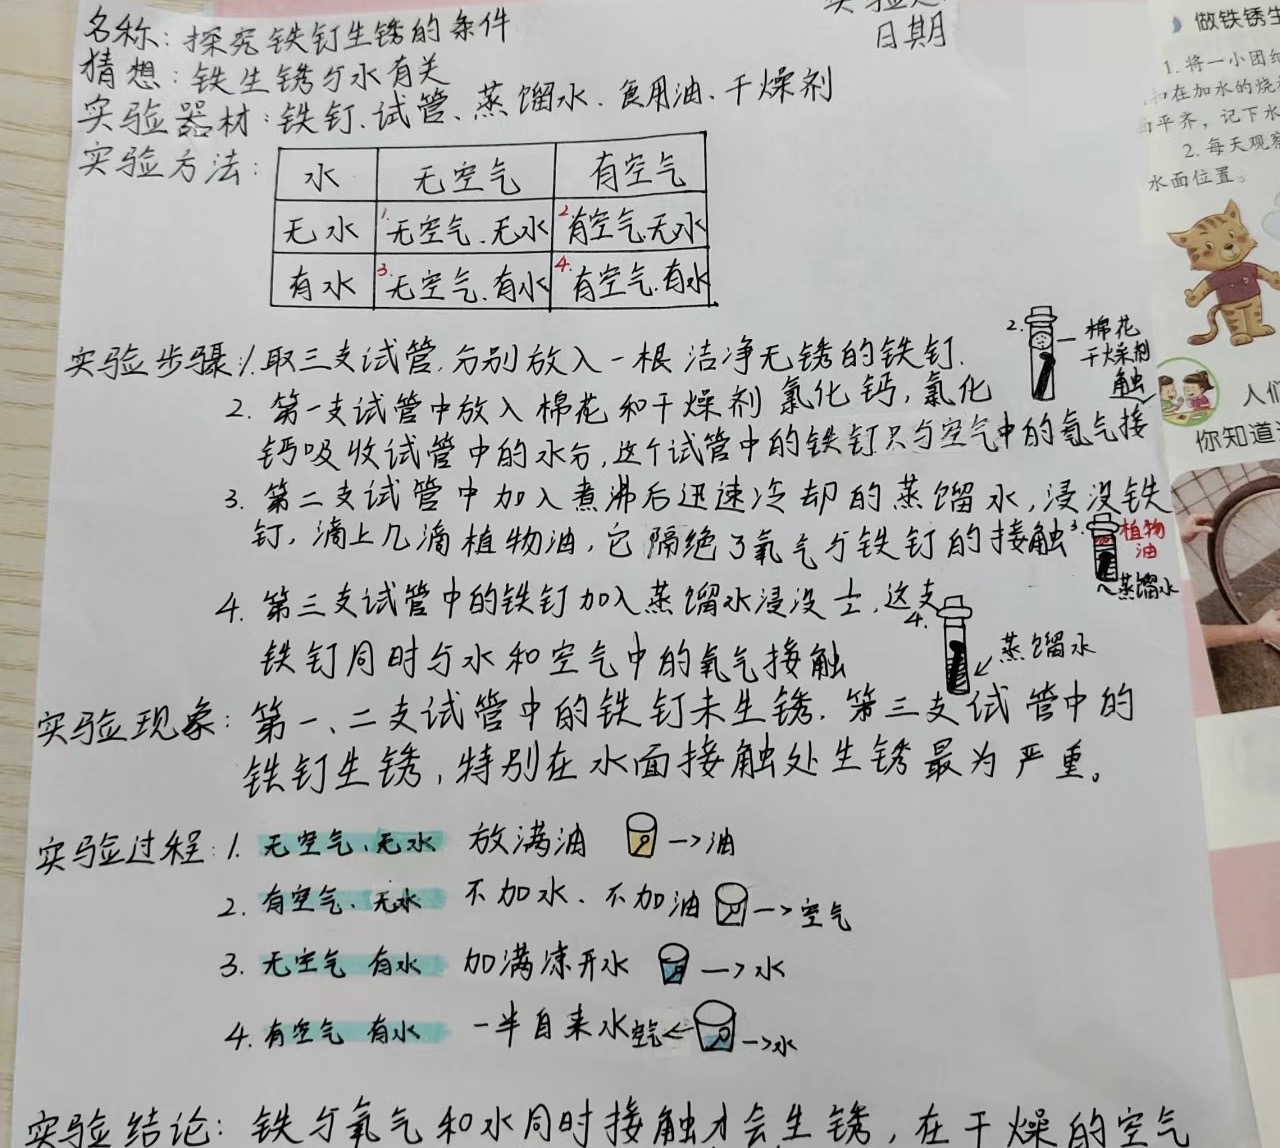 名称：探究铁钉生锈的条件
日期
猜想：铁生锈与水有关
实验器材：铁钉、试管、蒸馏水、食用油、干燥剂
实验方法：
水 无空气 有空气
无水 1.无空气、无水 2.有空气、无水
有水 3.无空气、有水 4.有空气、有水
实验步骤：1.取三支试管，分别放入一根洁净无锈的铁钉.
2.第一支试管中放入棉花和干燥剂氯化钙，氯化
钙吸收试管中的水分，这个试管中的铁钉只与空气中的氧气接
触
2.
棉花
干燥剂
3.第二支试管中加入煮沸后迅速冷却的蒸馏水，浸没铁
钉，滴上几滴植物油，它隔绝了氧气与铁钉的接触
3.
植物
油
蒸馏水
4.第三支试管中的铁钉加入蒸馏水浸没士，这支
铁钉同时与水和空气中的氧气接触
4.
蒸馏水
实验现象：第一、二支试管中的铁钉未生锈.第三支试管中的
铁钉生锈，特别在水面接触处生锈最为严重。
实验过程：1.无空气、无水 放满油 →油
2.有空气、无水 不加水、不加油 →空气
3.无空气 有水 加满凉开水 →水
4.有空气 有水 一半自来水 空气← →水
实验结论：铁与氧气和水同时接触才会生锈，在干燥的空气
做铁锈生
1.将一小团
扣在加水的烧
面平齐，记下水
2.每天观察
水面位置。
人们
你知道